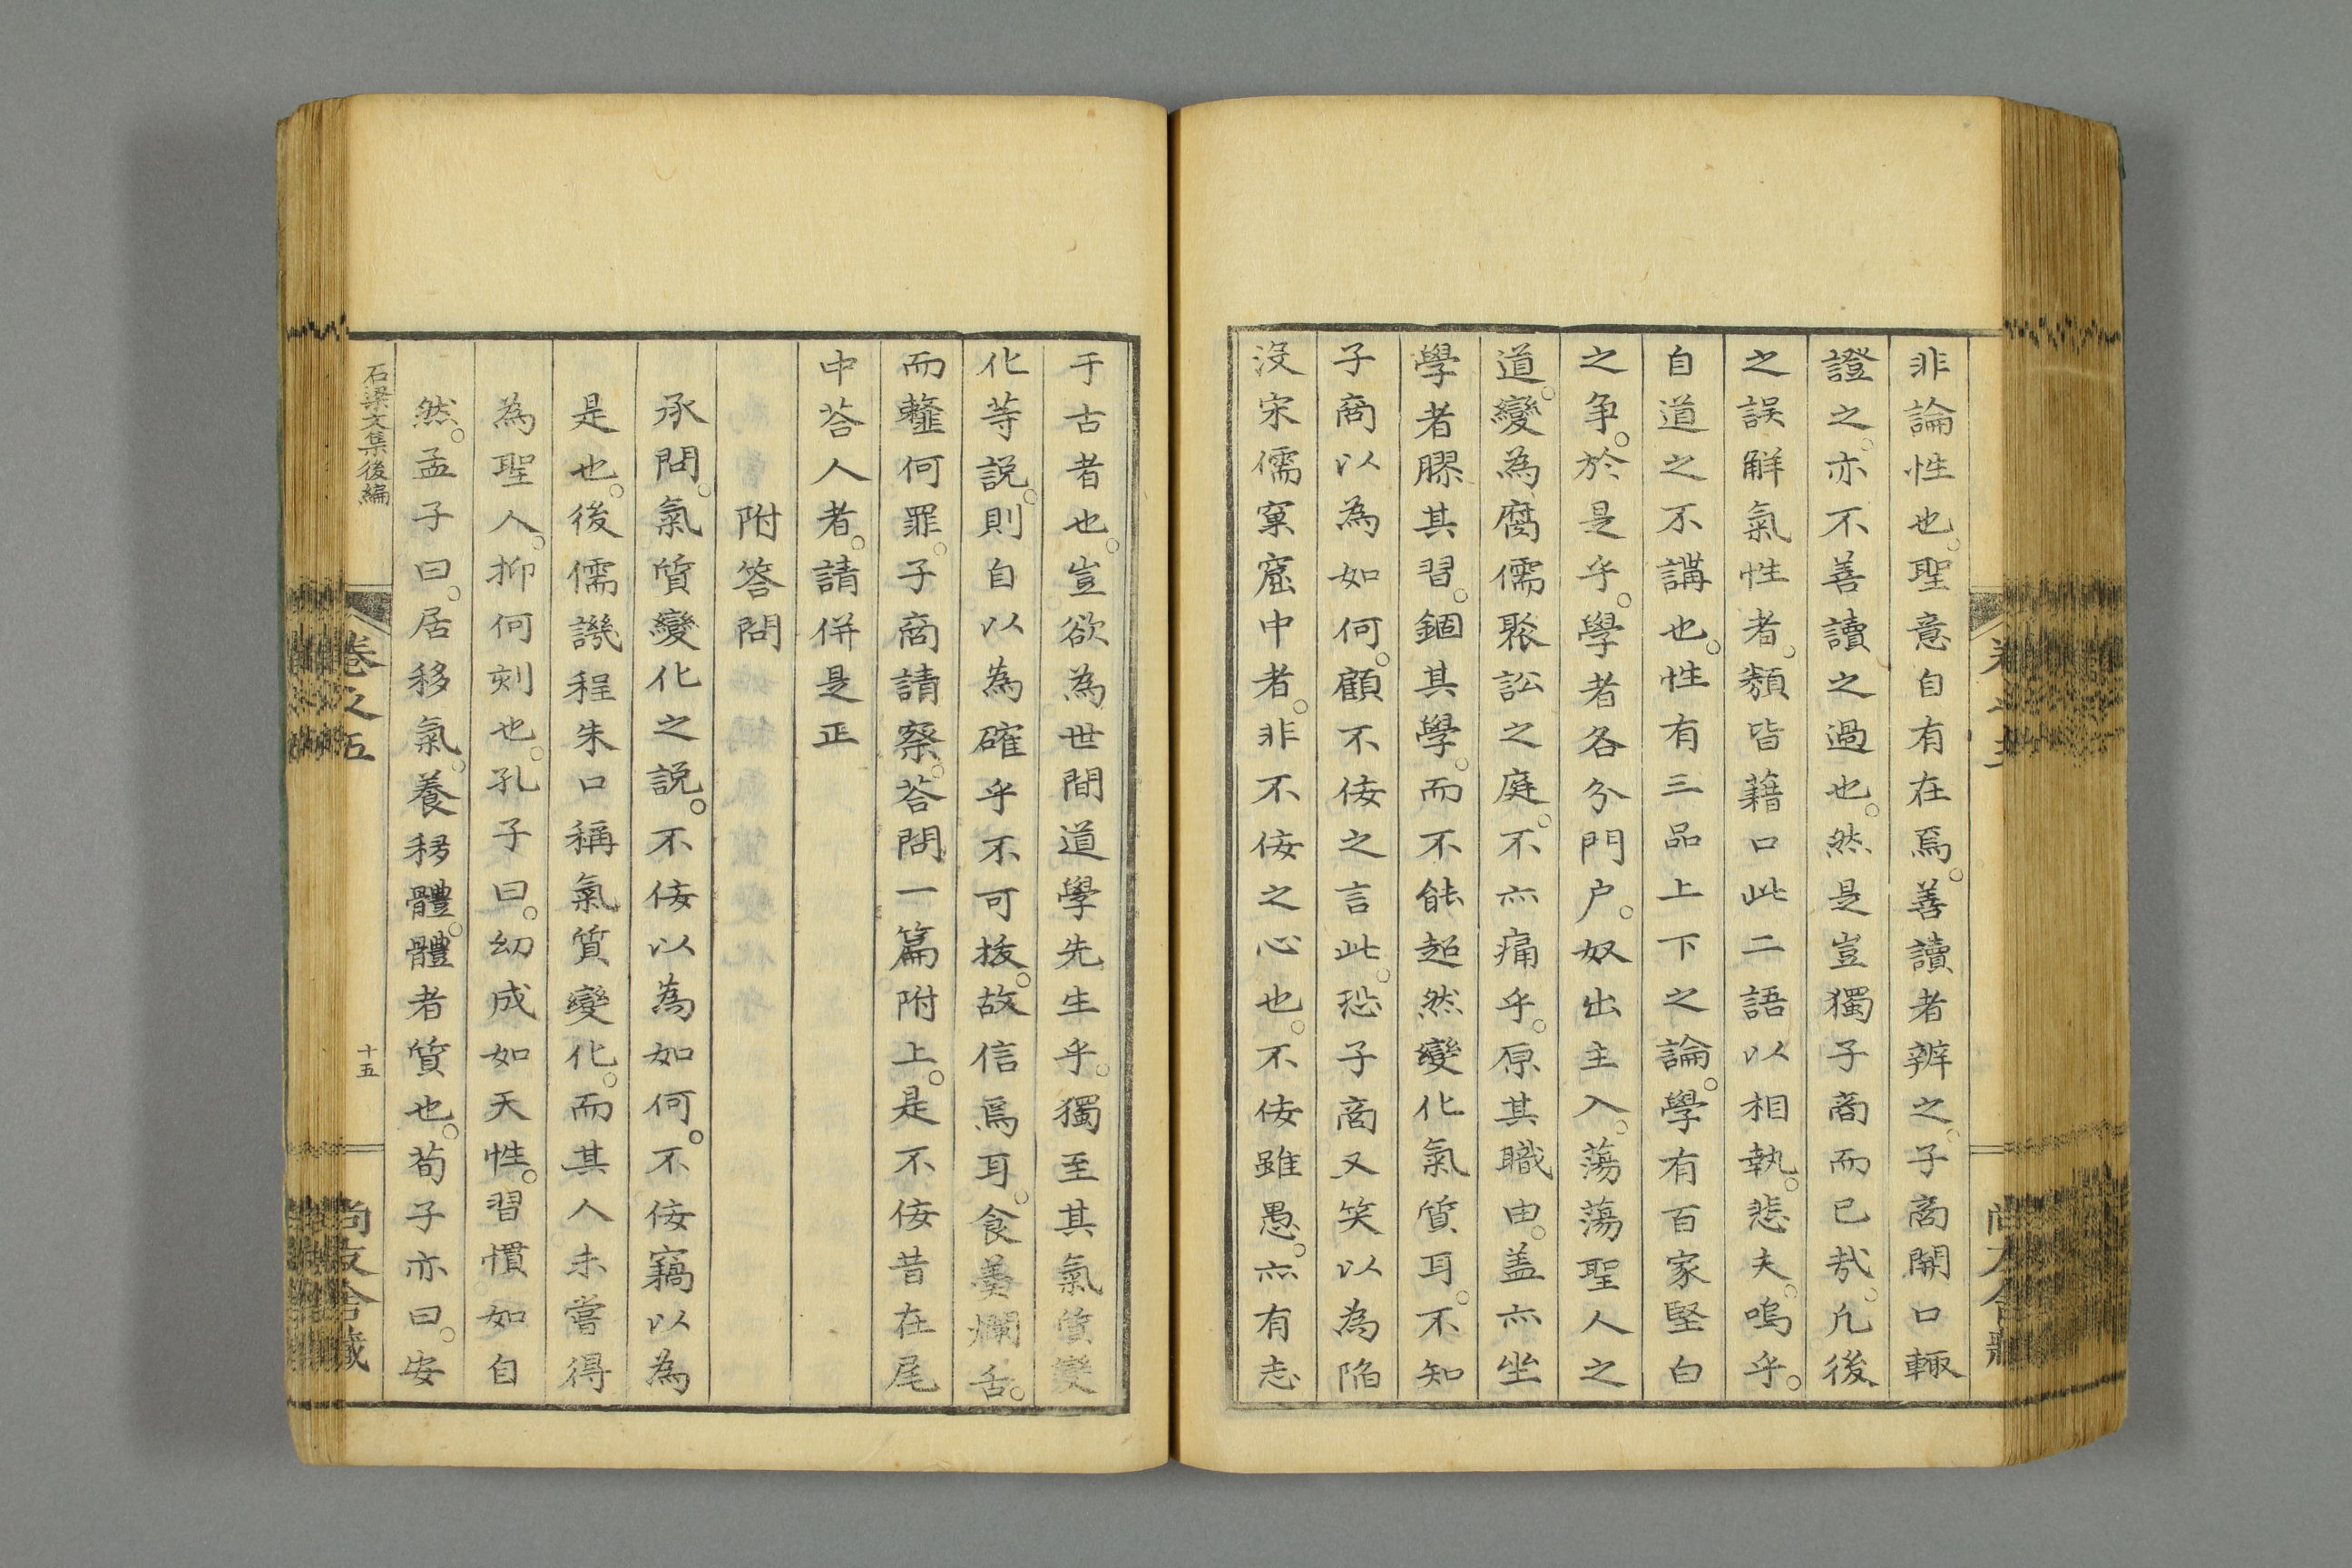 非論性也。聖意自有在焉。善讀者辨之。子商開口輒
證之。亦不善讀之過也。然是豈獨子商而已哉。凡後
之誤解氣性者。類皆藉口此二語以相執。悲夫。嗚乎。
自道之不講也。性有三品上下之論。學有百家堅白
之争。於是乎。學者各分門户。奴出主入。蕩蕩聖人之
道。變為腐儒聚訟之庭。不亦痛乎。原其職由。盖亦坐
學者膠其習。錮其學。而不能超然變化氣質耳。不知
子商以為如何。顧不佞之言此。恐子商又笑以為陷
沒宋儒窠窟中者。非不佞之心也。不佞雖愚。亦有志
于古者也。豈欲為世間道學先生乎。獨至其氣質變
化等説。則自以為確乎不可拔。故信焉耳。食羹爛舌。
而虀何罪。子商請察。荅問一篇附上。是不佞昔在尾
中荅人者。請併是正
附答問
承問。氣質變化之説。不佞以為如何。不佞竊以為
是也。後儒譏程朱口稱氣質變化。而其人未嘗得
為聖人。抑何刻也。孔子曰。幼成如天性。習慣如自
然。孟子曰。居移氣。養移體。體者質也。荀子亦曰。安
石梁文集後編
卷之五
十五
尚友舍藏